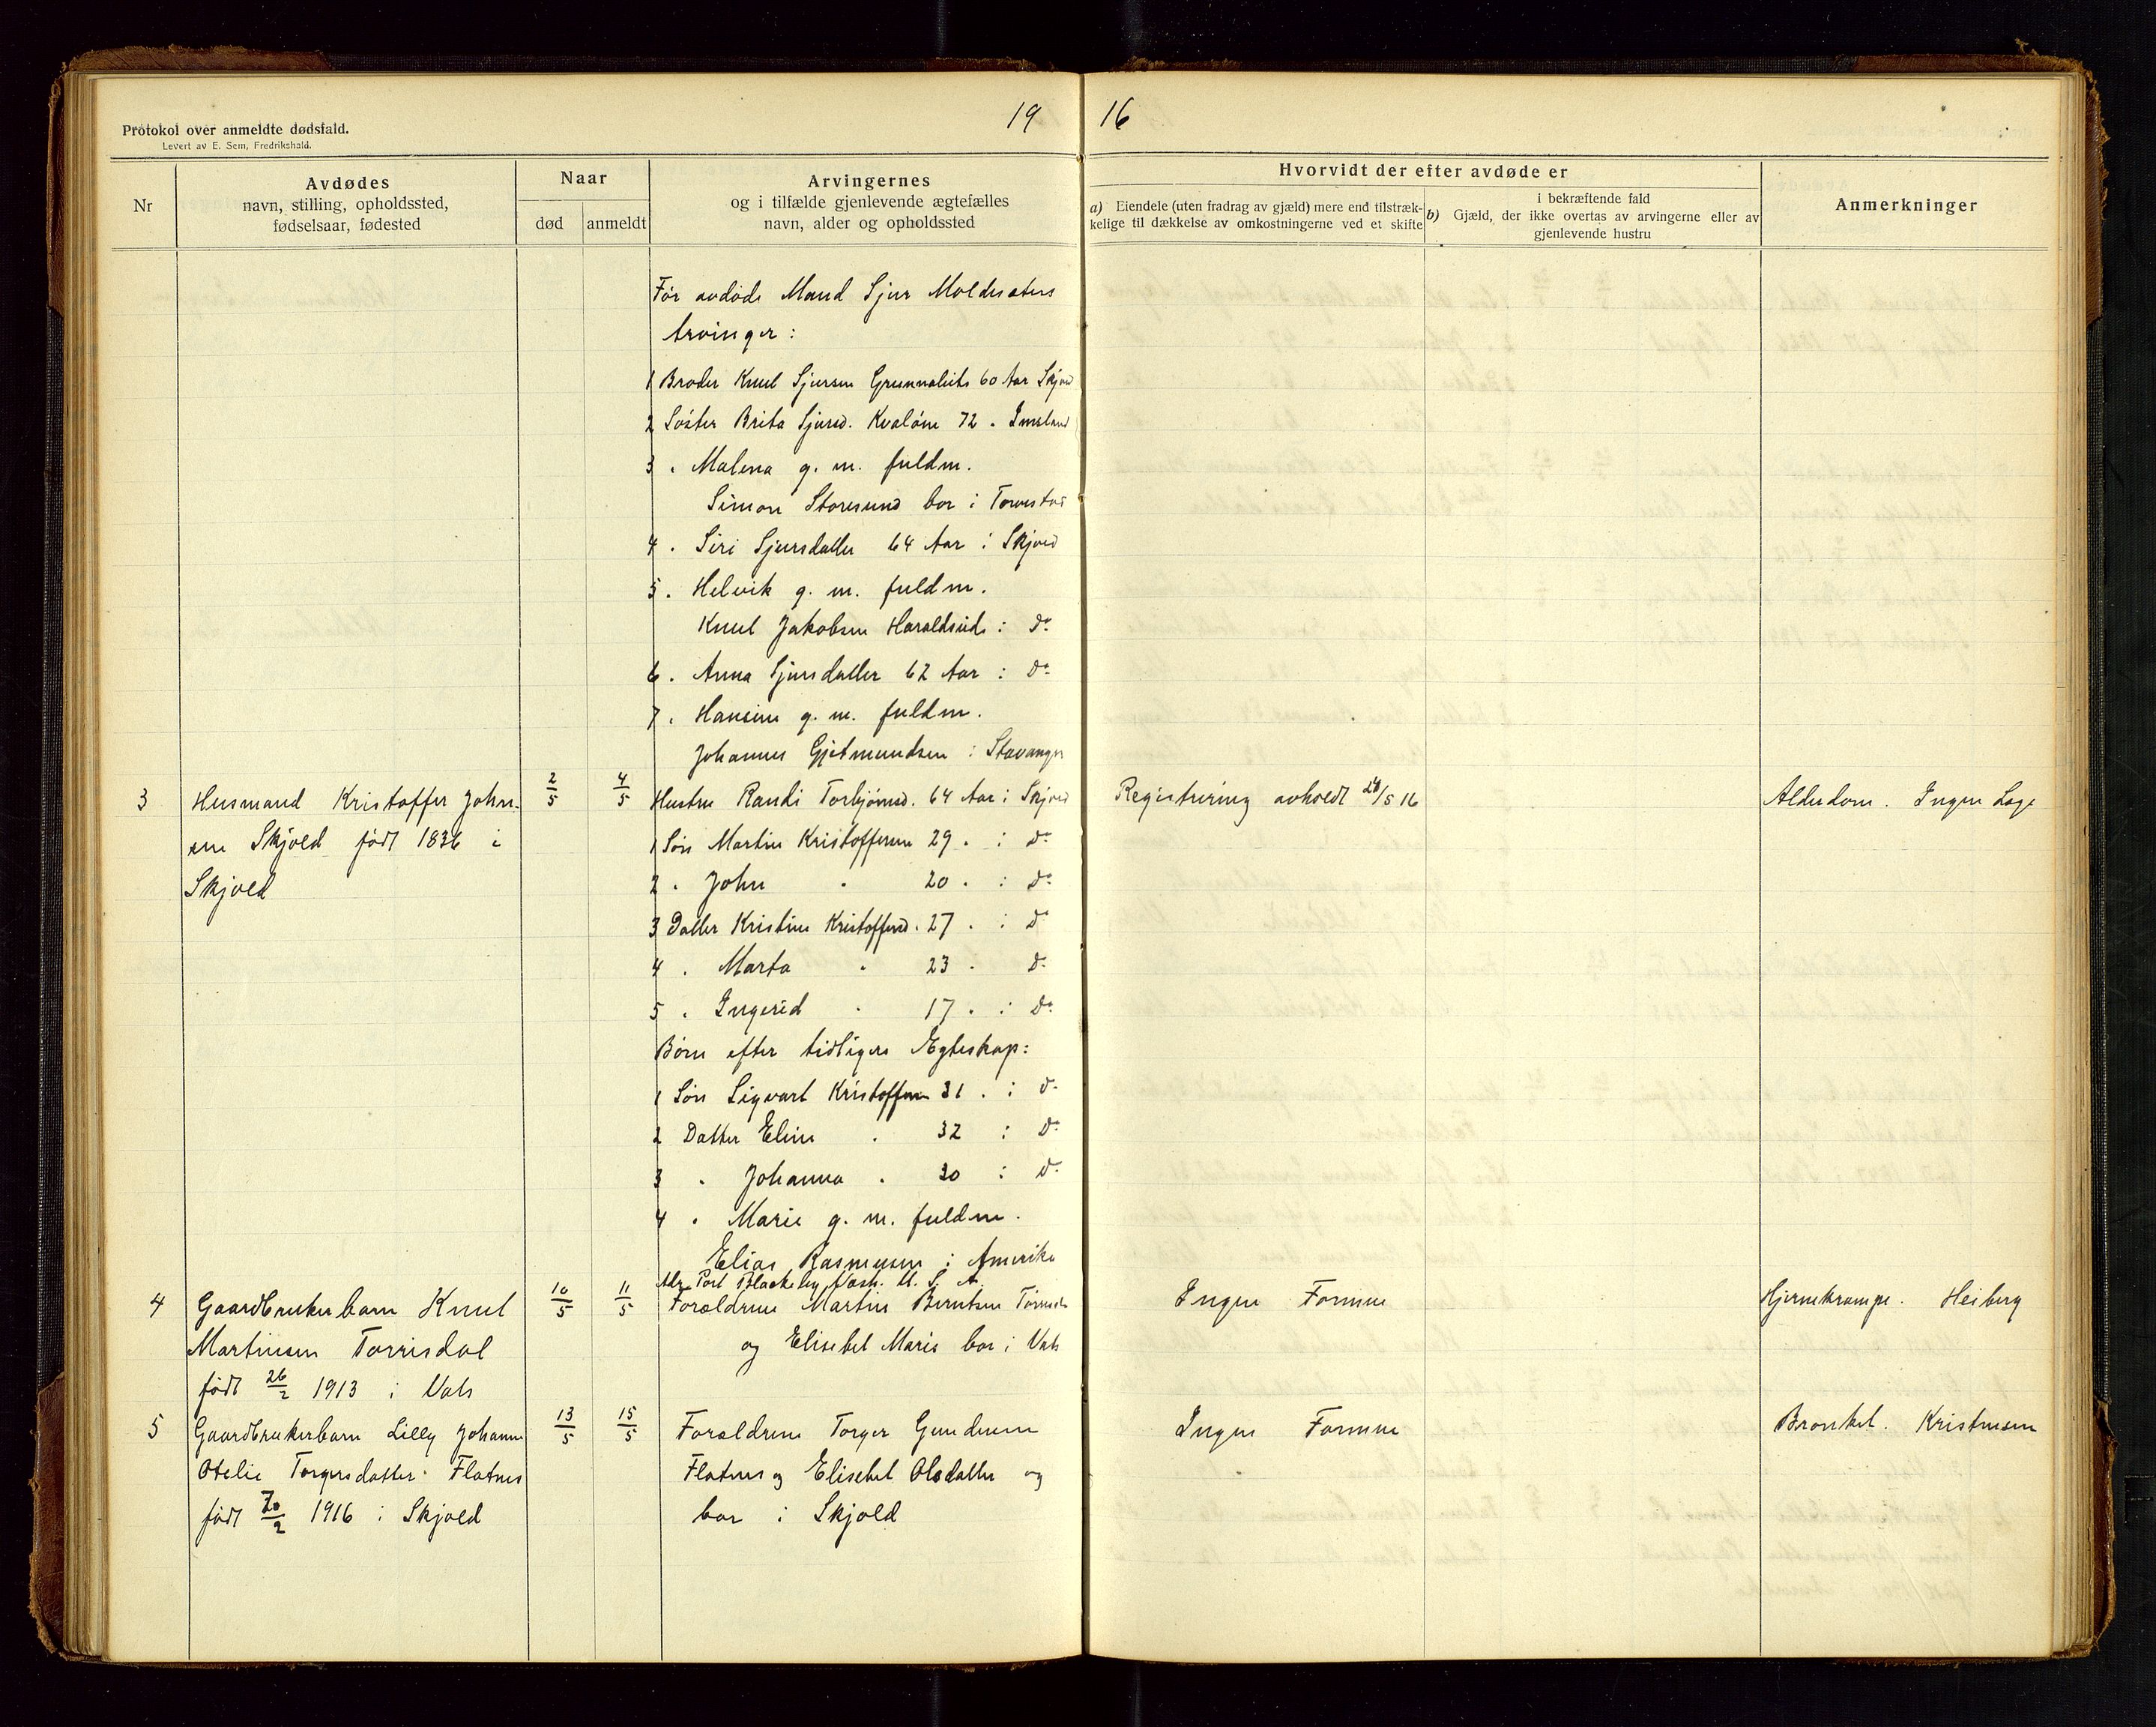 19 16
Protokol over anmeldte dødsfald.
Levert av E. Sem, Fredrikshald.
Nr
Avdødes
navn, stilling, opholdssted,
fødselsaar, fødested
Naar
død
anmeldt
Arvingernes
og i tilfælde gjenlevende ægtefælles
navn, alder og opholdssted
Hvorvidt der efter avdøde er
a) Eiendele (uten fradrag av gjæld) mere end tilstræk-
kelige til dækkelse av omkostningerne ved et skifte
i bekræftende fald
b) Gjæld, der ikke overtas av arvingerne eller av
gjenlevende hustru
Anmerkninger
Før avdøde Mand Sjur
Arvinger:
1 Broder Knut Sjursen 60 Aar Skjold
2 Søster Brita Sjursd. Kvaløen 72 " Imsland
3 " Malena g. m. fuldm.
Simon Storesund bor i Torvestad
4 " Siri Sjursdatter 64 Aar i Skjold
5 " Helvik g. m. fuldm.
Knut Jakobsen Haraldseid i do
6 " Anna Sjursdatter 62 Aar i do
7 " Hansine g. m. fuldm.
Johannes Gjetmundsen i Stavanger
3 Husmand Kristoffer John-
sen Skjold født 1836 i
Skjold
2/5 4/5
Hustru Randi Torbjørnsd. 64 Aar i Skjold
1 Søn Martin Kristoffersen 29 " i do
2 " John " 20 " i do
3 Datter Kristine Kristoffersd. 27 " i do
4 " Marta " 23 " do
5 " Ingerid " 17 " i do
Børn efter tidligere Ægteskap:
1 Søn Sigvart Kristoffersen 31 " i do
2 Datter Eline " 32 i do
3 " Johanna " 30 i do
4 " Marie g. m. fuldm.
Elias Rasmusen i Amerika
Adr. Port Wash. U. S. A.
Registrering avholdt /5 16
Alderdom. Ingen Læge
4 Gaardbrukerbarn Knut
Martinsen Torrisdal
født 26/2 1913 i Vats
10/5 11/5
Forældrene Martin Berntsen
og Elisebet Marie bor i Vats
Ingen Formue
Hjernekrampe. Heiberg
5 Gaardbrukerbarn Lilly Johanne
Otelie Torgersdatter Flatnes
født 1916 i Skjold
13/5 15/5
Forældrene Torger Gundersen
Flatnes og Elisebet Olsdatter og
bor i Skjold
Ingen Formue
Bronkit. Kristensen